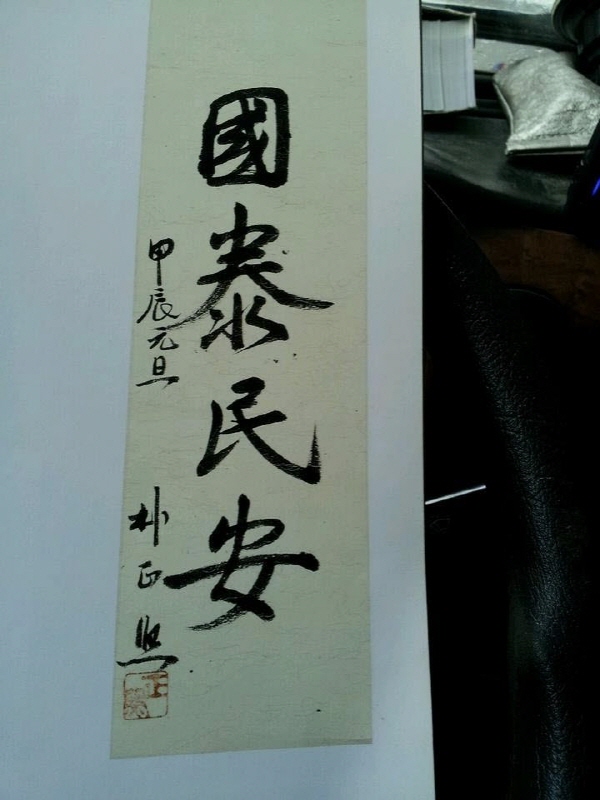 國泰民安
甲辰元旦
朴正熙